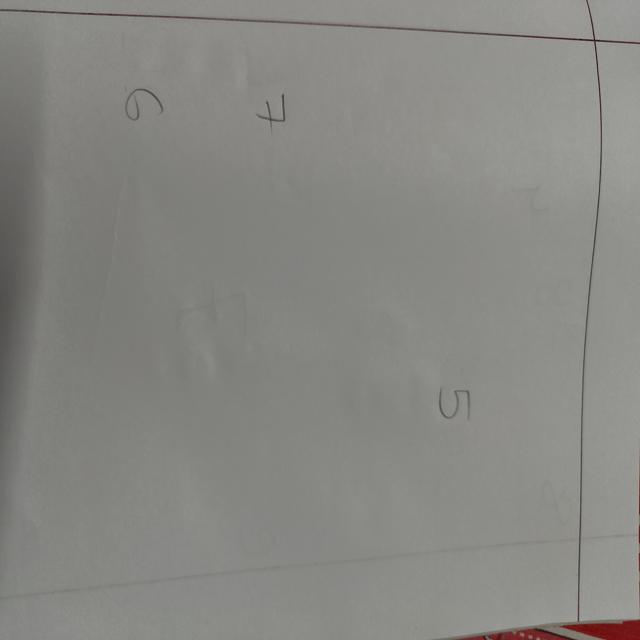 5
7
6